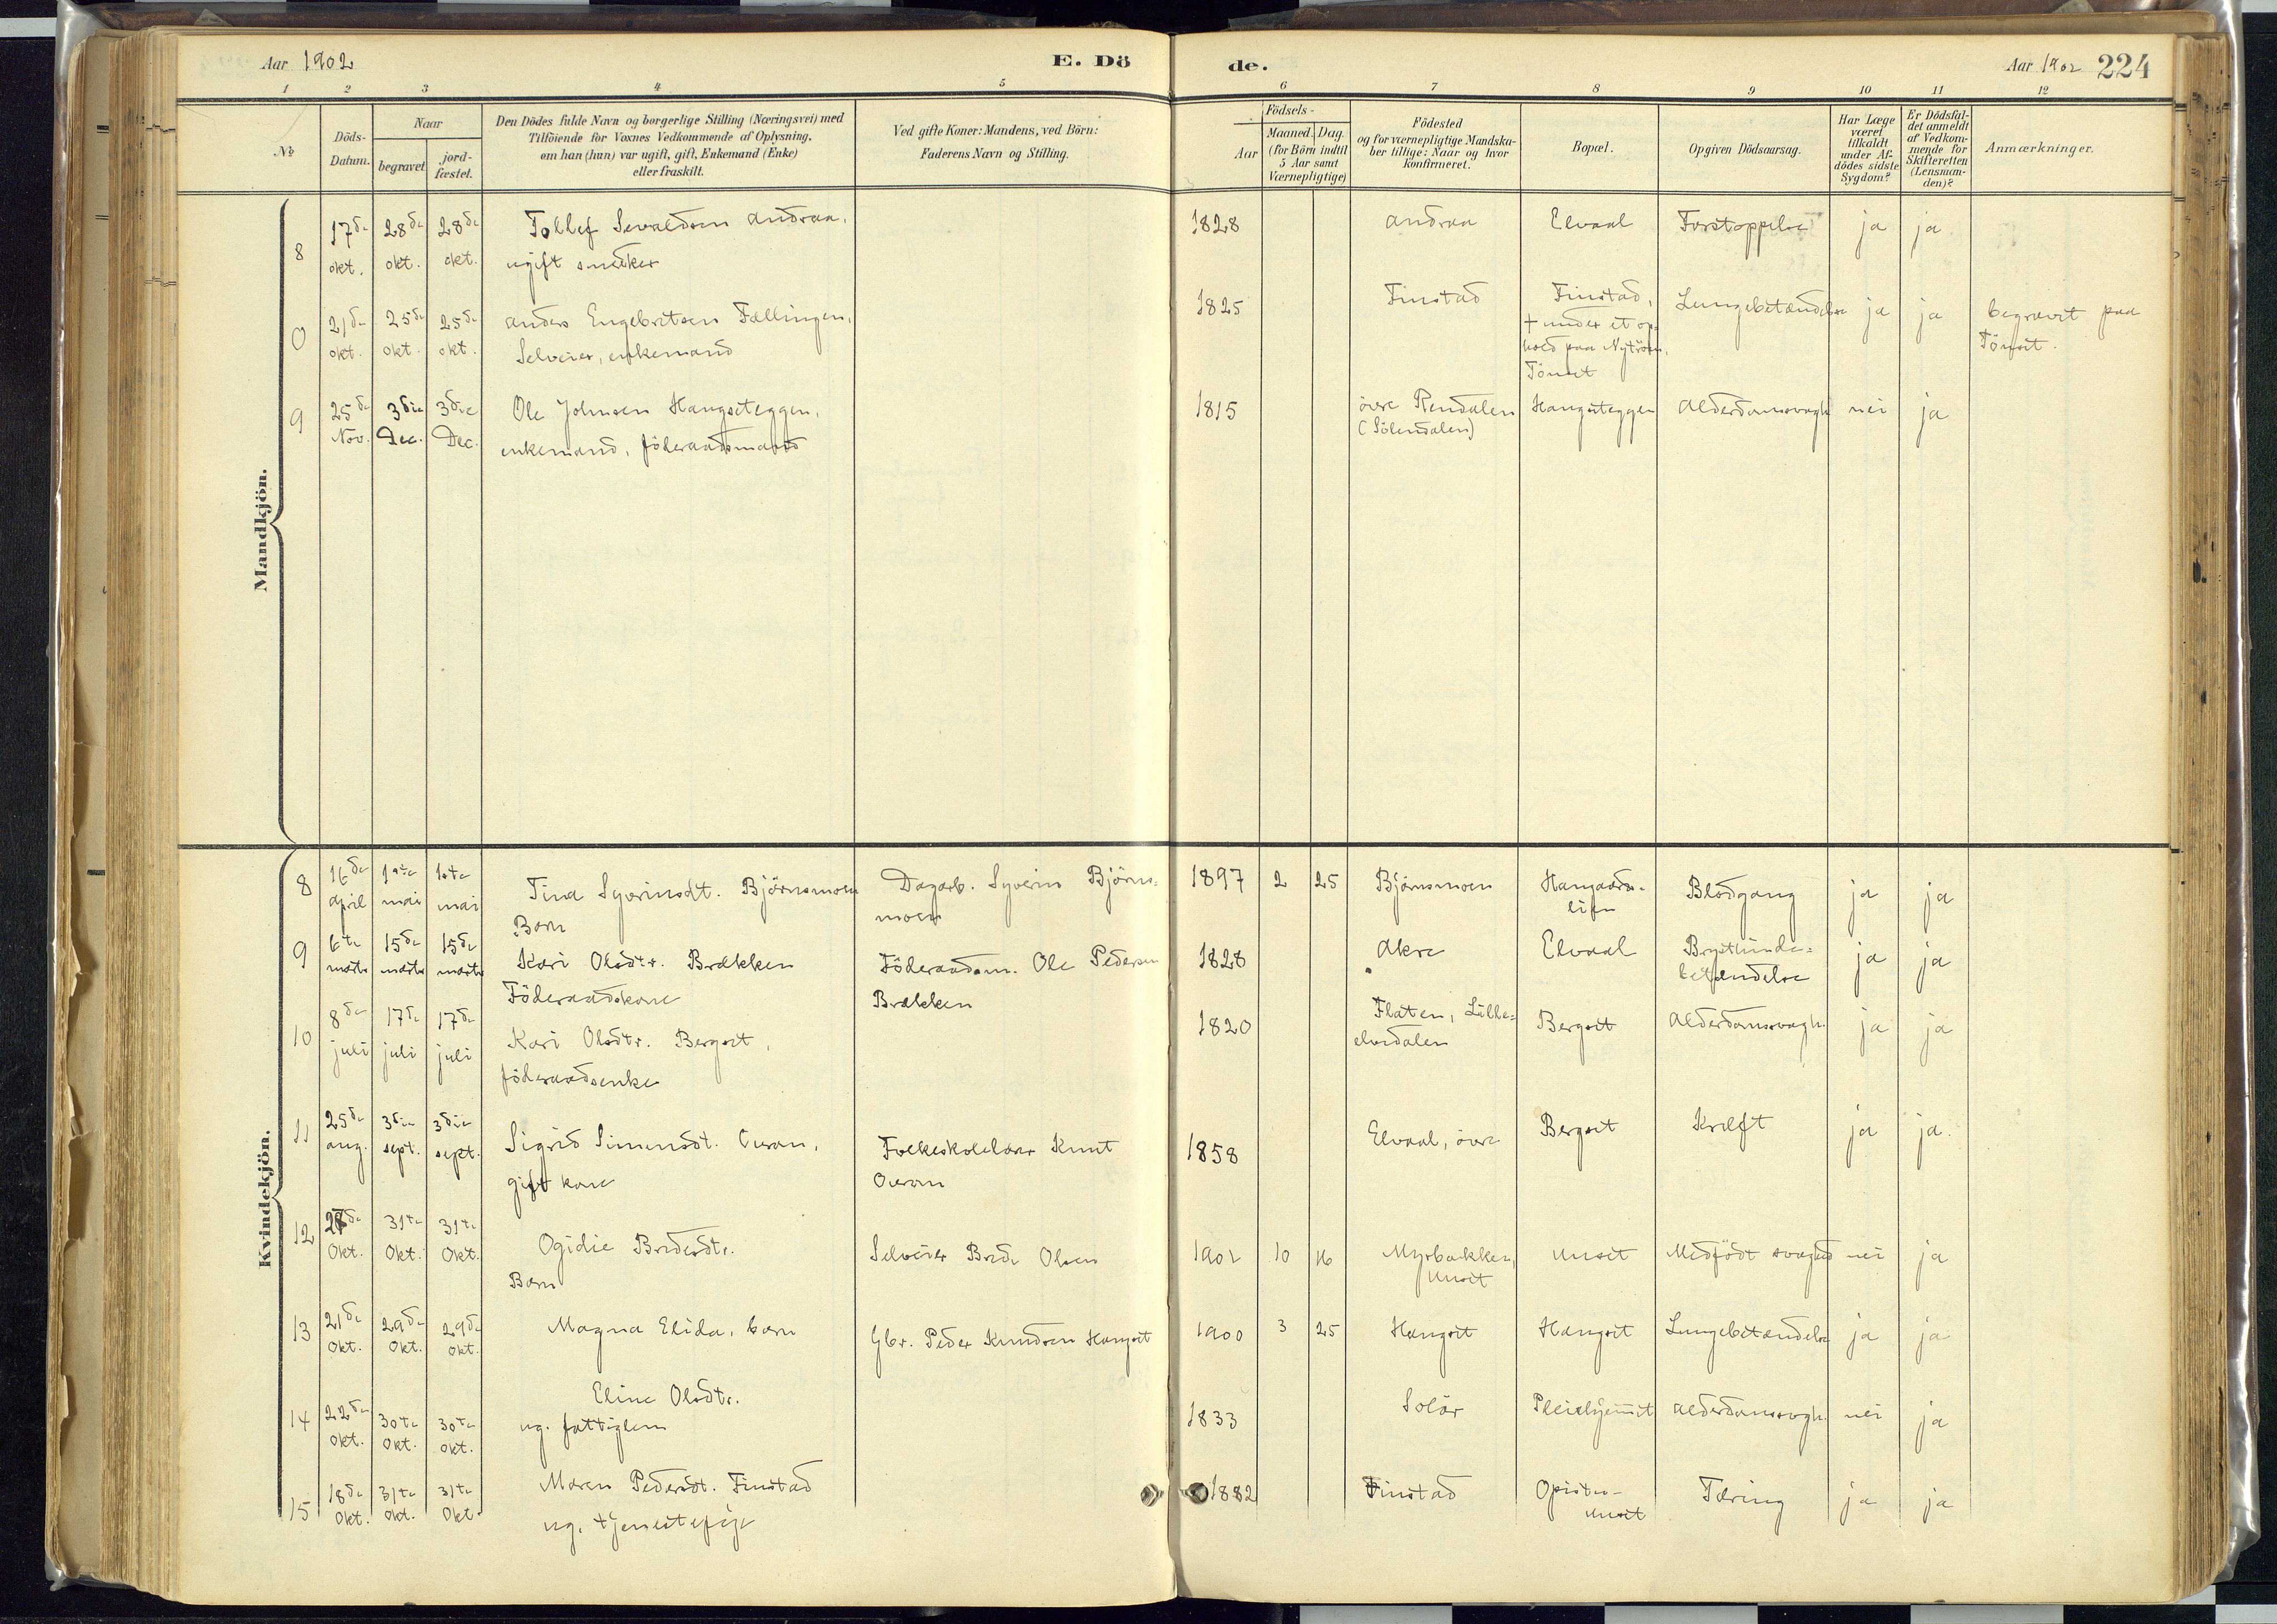 Aar 1902 E. Dö de. Aar 1902 224
1 2 3 4 5 6 7 8 9 10 11 12
№
Döds-
Datum.
Naar
begravet
jord-
fæstet.
Den Dödes fulde Navn og borgerlige Stilling (Næringsvei) med
Tilföiende for Voxnes Vedkommende af Oplysning.
om han (hun) var ugift, gift, Enkemand (Enke)
eller fraskilt.
Ved gifte Koner: Mandens, ved Börn:
Faderens Navn og Stilling.
Födsels-
Aar
Maaned. Dag.
(for Börn indtil
5 Aar samt
Værnepligtige)
Födested
og for værnepligtige Mandska-
ber tillige: Naar og hvor
konfirmeret.
Bopæl.
Opgiven Dödsaarsag.
Har Læge
været
tilkaldt
under Af-
dödes sidste
Sygdom?
Er Dödsfal-
det anmeldt
af Vedkom-
mende for
Skifteretten
(Lensman-
den)?
Anmærkninger.
Mandkjön.
8 17de 28de 28de Tollef Sevaldsen Andraa, 1828 Andraa Elvaal Forstoppelse ja ja
okt. okt. okt. ugift snekker
0 21de 25de 25de Anders Engebretsen Fællingen, 1825 Finstad Finstad, Lungebetændelse ja ja begravet paa
okt. okt. okt. Selveier, enkemand + under et op-
hold paa Nytrøen, Tönset.
Tönset
9 25de 3die 3die Ole Johnsen Hangseteggen, 1815 övre Rendalen Hangseteggen Alderdomssvagh. nei ja
Nov. Dec. Dec. enkemand, föderaadsmand (Sölendalen)
Kvindekjön.
8 16de 1ste 1ste Tina Syverinsdt. Björnsmoen Dagarb. Syverin Björns- 1897 2 25 Björnsmoen Hangaards- Blodgang ja ja
april mai mai Barn moen lien
9 6te 15de 15de Kari Olsdtr. Brækken Föderaadsm. Ole Pedersen 1828 Akre Elvaal Brysthinde- ja ja
marts marts marts Föderaadskone Brækken betændelse
10 8de 17de 17de Kari Olsdtr. Bergset, 1820 Flaten, Lille- Bergset Alderdomssvagh. ja ja
juli juli juli föderaadsenke elvedalen
11 25de 3die 3die Sigrid Simensdt. Øvran, Folkeskolelærer Knut 1858 Elvaal, övre Bergset Kræft ja ja
aug. sept. sept. gift kone
12 28de 31te 31te Ogidie Bredesdtr. Selveier Brede Olsen 1902 10 16 Myrbakken, Unset Medfödt svaghed nei ja
Okt. Okt. Okt. Barn Unset
13 21de 29de 29de Magna Elida, barn Gbr. Peder Knudsen Hangset 1900 3 25 Hangset Hangset Lungebetændelse ja ja
Okt. Okt. Okt.
14 22de 30te 30te Eline Olsdtr. 1833 Solör Pleiehjemmet Alderdomssvagh. nei ja
Okt. Okt. Okt. ug. fattiglem
15 18de 31te 31te Maren Pedersdt. Finstad 1882 Finstad Opistu- Tæring ja ja
Okt. Okt. Okt. ug. tjenestepige Unset